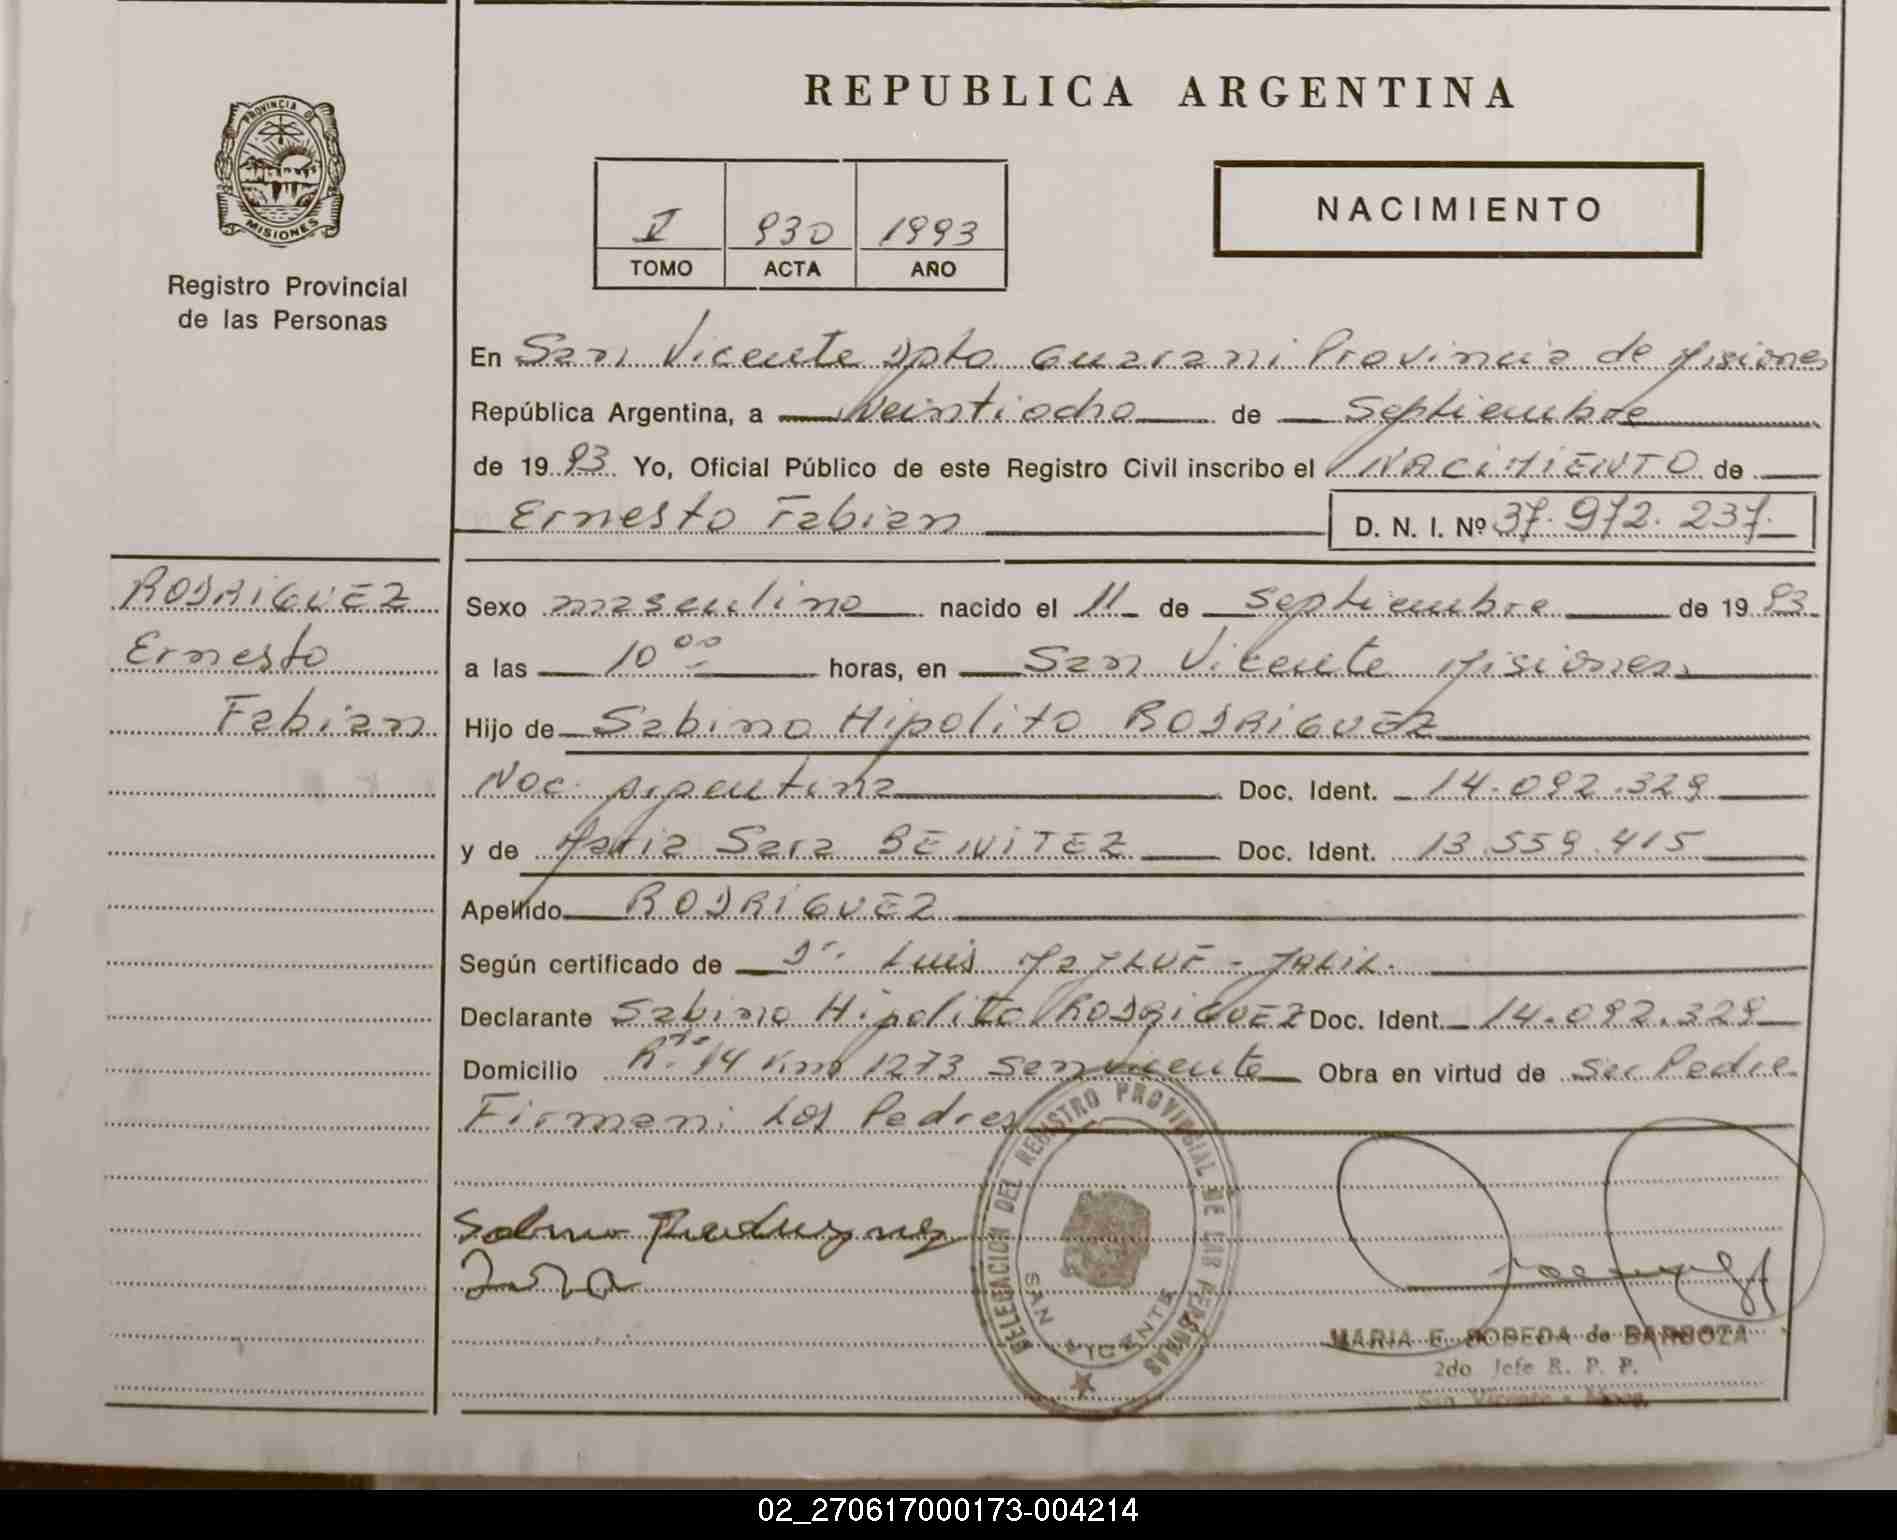 REPUBLICA ARGENTINA
PROVINCIA DE
MISIONES
Registro Provincial
de las Personas
V 930 1993
TOMO ACTA AÑO
NACIMIENTO
En San Vicente Dpto Guarani Provincia de Misiones
República Argentina, a veintiocho de Septiembre
de 19 93 Yo, Oficial Público de este Registro Civil inscribo el NACIMIENTO de
Ernesto Fabian D. N. I. Nº 37.972.237.
RODRIGUEZ
Ernesto
Fabian
Sexo masculino nacido el 11 de Septiembre de 19 93
a las 10 00 horas, en San Vicente Misiones
Hijo de Sabino Hipolito RODRIGUEZ
Nac. Argentina Doc. Ident. 14.092.329
y de Maria Sara BENITEZ Doc. Ident. 13.559.415
Apellido RODRIGUEZ
Según certificado de Dr. Luis JALIL.
Declarante Sabino Hipolito RODRIGUEZ Doc. Ident. 14.092.329
Domicilio Rta. 14 Km 1273 San Vicente Obra en virtud de ser Padre
Firman: Los Padres
DELEGACION DEL REGISTRO PROVINCIAL DE LAS PERSONAS
SAN VICENTE
MARIA E. BOBEDA de BARBOZA
2do Jefe R. P. P.
San Vicente - Mnes.
02_270617000173-004214